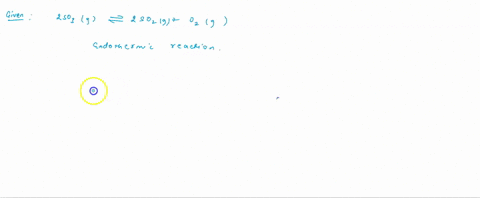 Given : 2SO3 (g) ⇌ 2SO2(g) + O2 (g)
Endothermic reaction.